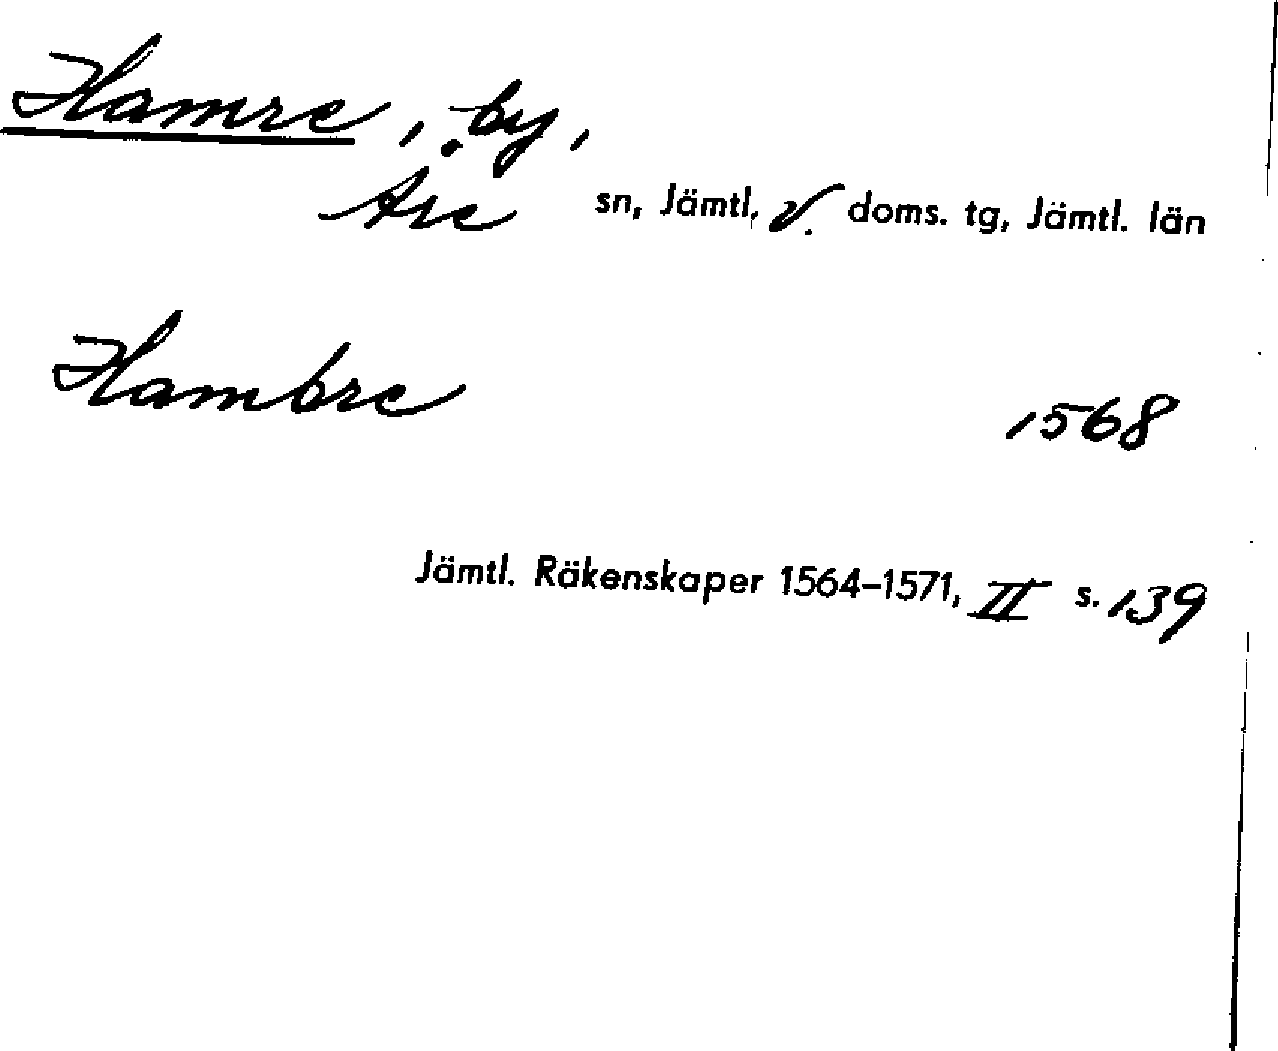 Hamre, by,
Åre sn, Jämtl, v. doms. tg, Jämtl. län
Hambre
1568
Jämtl. Räkenskaper 1564–1571, II s. 139